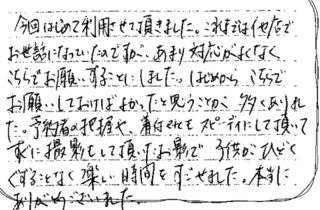 今回はじめて利用させて頂きました。これまでは他店で
お世話になっていたのですが、あまり対応がよくなく、
こちらでお願いすることにしました。はじめから こちらで
お願いしておけばよかったと思うことが 多くありまし
た。予約者の把握や、着付もスピーディにして頂いて
すぐに撮影をして頂いたお影で 子供がひどく
ぐずることなく楽しい時間をすごせました。本当に
ありがとうございました。